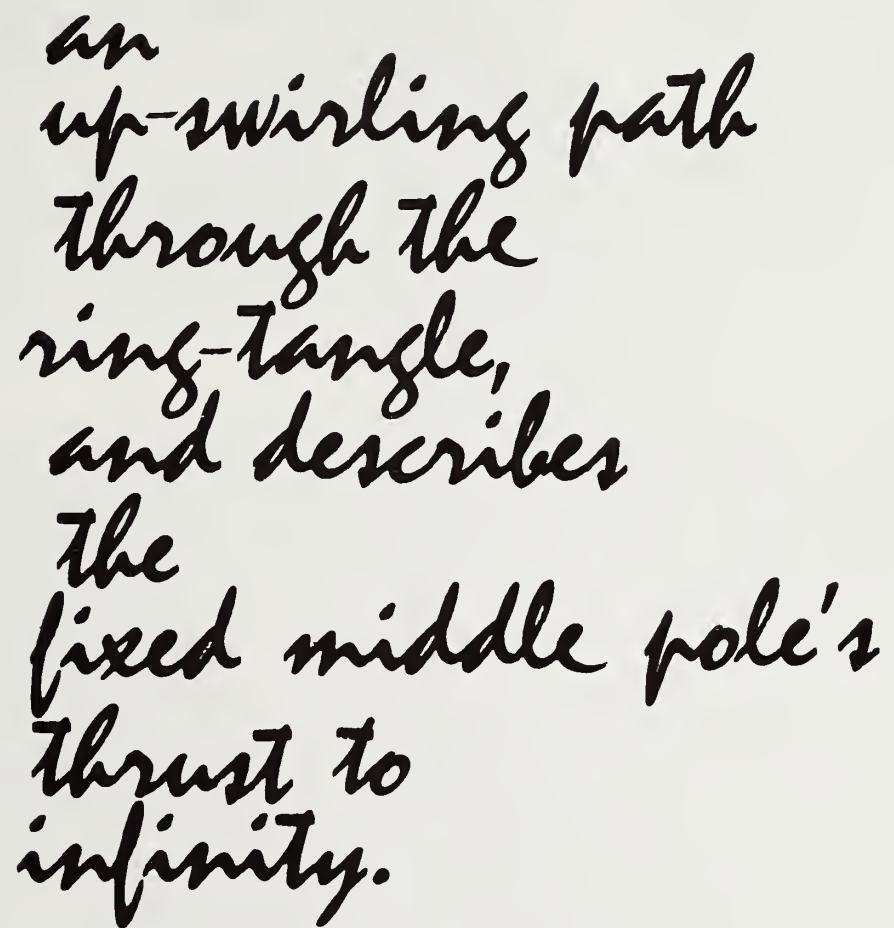 an
up-swirling path
through the
ring-tangle,
and describes
the
fixed middle pole's
thrust to
infinity.